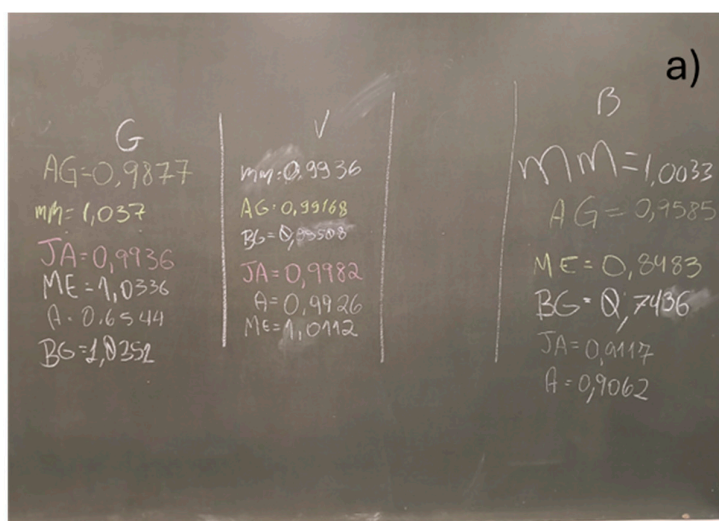 a)
G
AG=0,9877
mm=1,037
JA=0,9936
ME=1,0336
A=0.6544
BG=1,0351
V
mm=0,9936
AG=0,99168
JA=0,9982
A=0,9926
ME=1,0112
B
mm=1,0033
AG=0,9585
ME=0,8483
BG=0,7436
JA=0,9117
A=0,9062